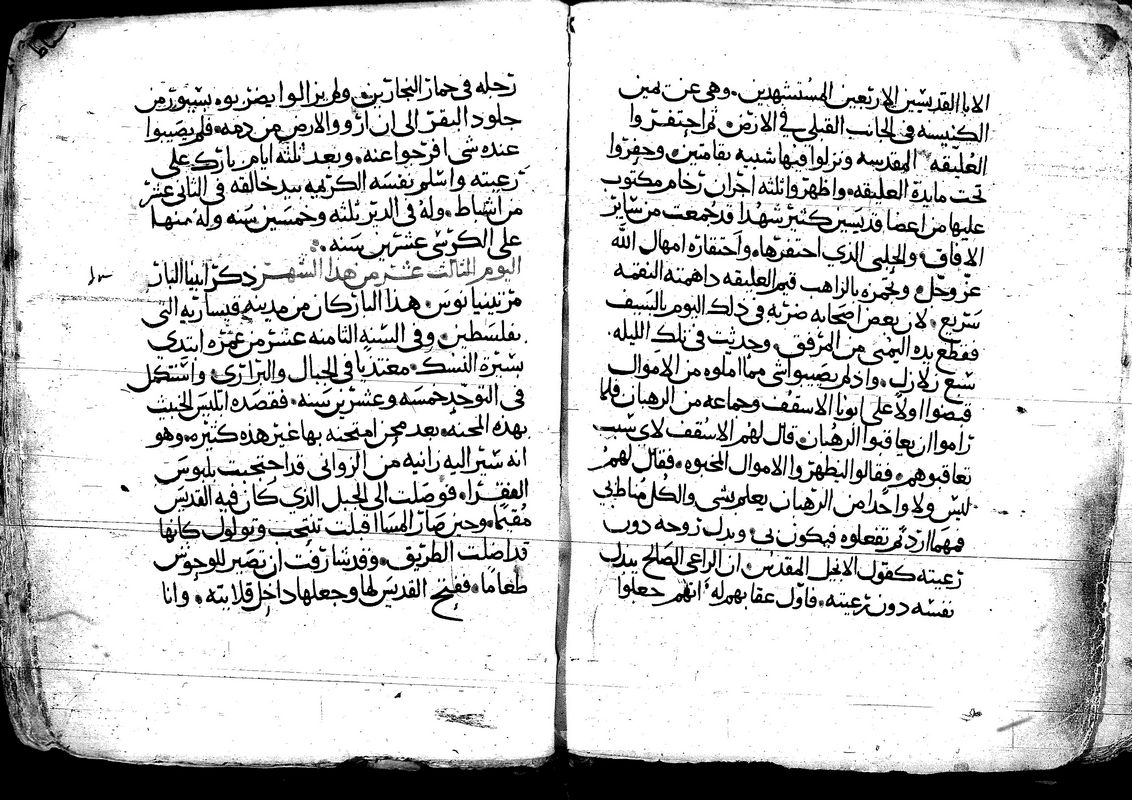 الابا القديسين الاربعين المستشهدين. وهي عن يمين
الكنيسه في الجانب القبلي في الارض. ثم احتفروا
العليقه المقدسه ونزلوا فيها شبيه بقامتين وحفروا
تحت مايدة العليقه. واظهروا ثلثه اجران رخام مكتوب
عليها من اعضا قديسين كثير شهدا قد جمعت من ساير
الافاق. والحلبي الذي احتفرها. واحتقاره امهال الله
عز وجل. بالراهب قيم العليقه داهمته النقمه
سريع. لان بعض اصحابه ضربه في ذلك اليوم بالسيف
فقطع يده اليمنى من المرفق. وحدثت في تلك الليله.
سبع زلازل. واذ لم يصيبوا شي مما املوه من الاموال
قبضوا اولا على ابونا الاسقف وجماعه من الرهبان فلما
راموا ان يعاقبوا الرهبان. قال لهم الاسقف لاي سبب
تعاقبوهم. فقالوا ليظهروا الاموال المخبوه. فقال لهم
ليس ولا واحدا من الرهبان يعلم بشي. والكل مناط بي
فمهما اردتم تفعلوه فيكون بي. وبدل زوجه دون
رعيته كقول الانجيل المقدس. ان الراعي الصالح يبدل
نفسه دون رعيته. فاول عقابهم له انهم جعلوا
رجله في حمار النجارين. ولم يزالوا يضربوه. بسيور من
جلود البقر الى ان ارووا الارض من دمه. فلم يصيبوا
عنده شي افرجوا عنه. وبعد ثلثه ايام بارك على
رعيته واسلم نفسه الكريمه بيد خالقه في الثاني عشر
من اشباط. وله في الدير ثلثه وخمسين سنه وله منها
على الكرسي عشرين سنه.
اليوم الثالث عشر من هذا الشهر ذكر ابينا البار
مرتينيانوس. هذا البار كان من مدينه قيساريه التي
بفلسطين. وفي السنه الثامنه عشر من عمره ابتدى
بسيرة النسك. مغتديا في الجبال والبراري. واستكمل
في التوحد خمسه وعشرين سنه. فقصده ابليس الخبيث
بهذه المحنه. بعد محن امتحنه بها غير هذه كثيره. وهو
انه سير اليه زانيه من الزواني قد احتجبت بلبوس
الفقرا. فوصلت الى الجبل الذي كان فيه القديس
مقيما. وحين صار المسا اقبلت تنتحب وتولول كانها
قد اضلت الطريق. وقد شارفت ان تصير للوحوش
طعاما. ففتح القديس لها وجعلها داخل قلايته. وانا